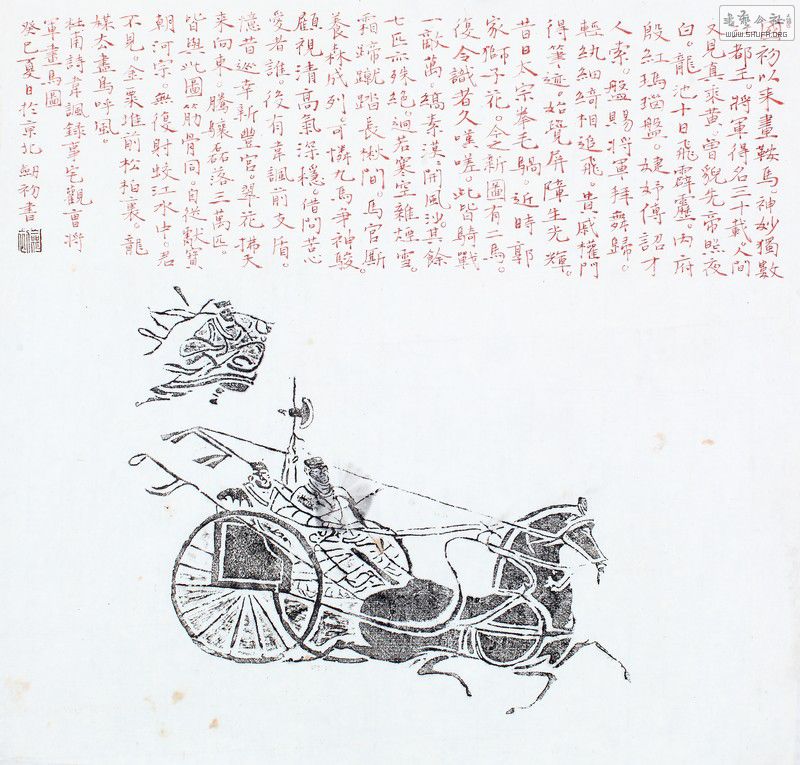 初以來畫鞍馬。神妙獨數
都王。將軍得名三十載。人間
又見真乘黃。曾貌先帝照夜
白。龍池十日飛霹靂。內府
殷紅瑪瑙盤。婕妤傳詔才
人索。盤賜將軍拜舞歸。
輕紈細綺相追飛。貴戚權門
得筆迹。始覺屏障生光輝。
昔日太宗拳毛騧。近時郭
家獅子花。今之新圖有二馬。
復令識者久嘆嗟。此皆騎戰
一敵萬。縞素漠開風沙。其餘
七匹亦殊絕。迥若寒空雜煙雪。
霜蹄蹴踏長楸間。馬官廝
養森成列。可憐九馬爭神駿。
顧視清高氣深穩。借問苦心
愛者誰。後有韋諷前支盾。
憶昔巡幸新豐宮。翠花拂天
來向東。騰驤磊落三萬匹。
皆與此圖筋骨同。自從獻寶
朝河宗。無復射蛟江水中。君
不見。金粟堆前松柏裏。龍
媒去盡鳥呼風。
杜甫詩韋諷錄事宅觀曹將
軍畫馬圖
癸巳夏日於京北 初書
WWW.SHUFA.ORG